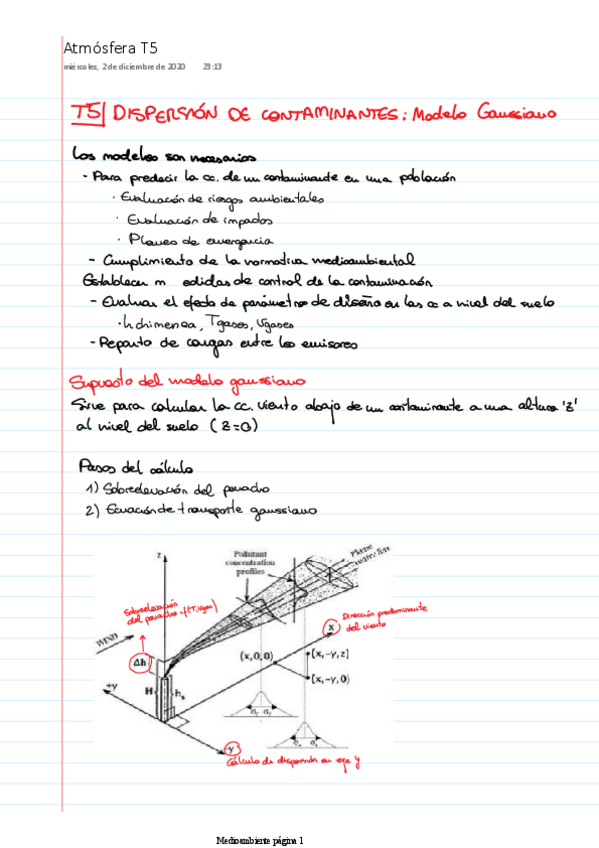 Atmósfera T5
miércoles, 2 de diciembre de 2020 23:13
T5| DISPERSIÓN DE CONTAMINANTES: Modelo Gaussiano
Los modelos son necesarios
- Para predecir la cc. de un contaminante en una población
· Evaluación de riesgos ambientales
· Evaluación de impactos
· Planes de emergencia
- Cumplimiento de la normativa medioambiental
Establecer m edidas de control de la contaminación
- Evaluar el efecto de parámetros de diseño en las cc a nivel del suelo
· h chimenea, Tgases, Vgases
- Reparto de cargas entre los emisores
Supuesto del modelo gaussiano
Sirve para calcular la cc. viento abajo de un contaminante a una altura 'z'
al nivel del suelo (z=0)
Pasos del cálculo
1) Sobreelevación del penacho
2) Ecuación de transporte gaussiano
z
Pollutant
concentration
profiles
Plume
centreline
Sobreelevación
del penacho
Dirección predominante
del viento
x
WIND
Δh
(x,0,0)
(x,-y,z)
(x,-y,0)
+y
H
hs
y
Cálculo de dispersión en eje y
Medioambiente página 1